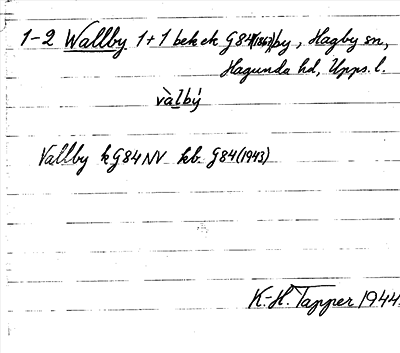 1-2 Wallby 1+1 bek ek G84(1863) by, Hagby sn,
Hagunda hd, Upps. l.
vàlbý
Vallby k G84NV kb. G84(1943)
K.-H. Tapper 1944.